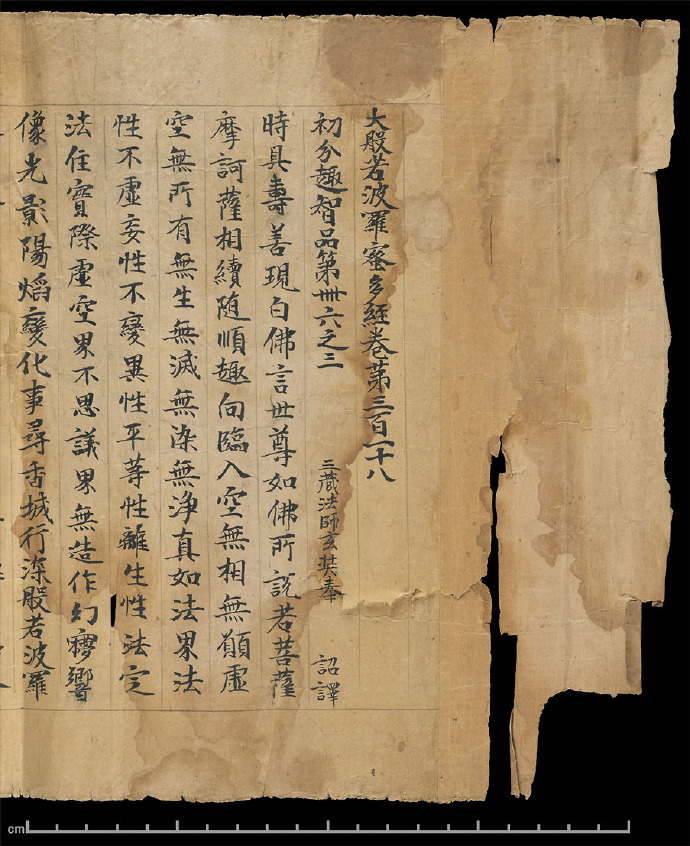 大般若波羅蜜多經卷第三百一十八
初分趣智品第卌六之三 三藏法師玄奘奉 詔譯
時具壽善現白佛言世尊如佛所說若菩薩
摩訶薩相續隨順趣向臨入空無相無願虛
空無所有無生無滅無染無淨真如法界法
性不虛妄性不變異性平等性離生性法定
法住實際虛空界不思議界無造作幻夢響
像光影陽焰變化事尋香城行深般若波羅
cm